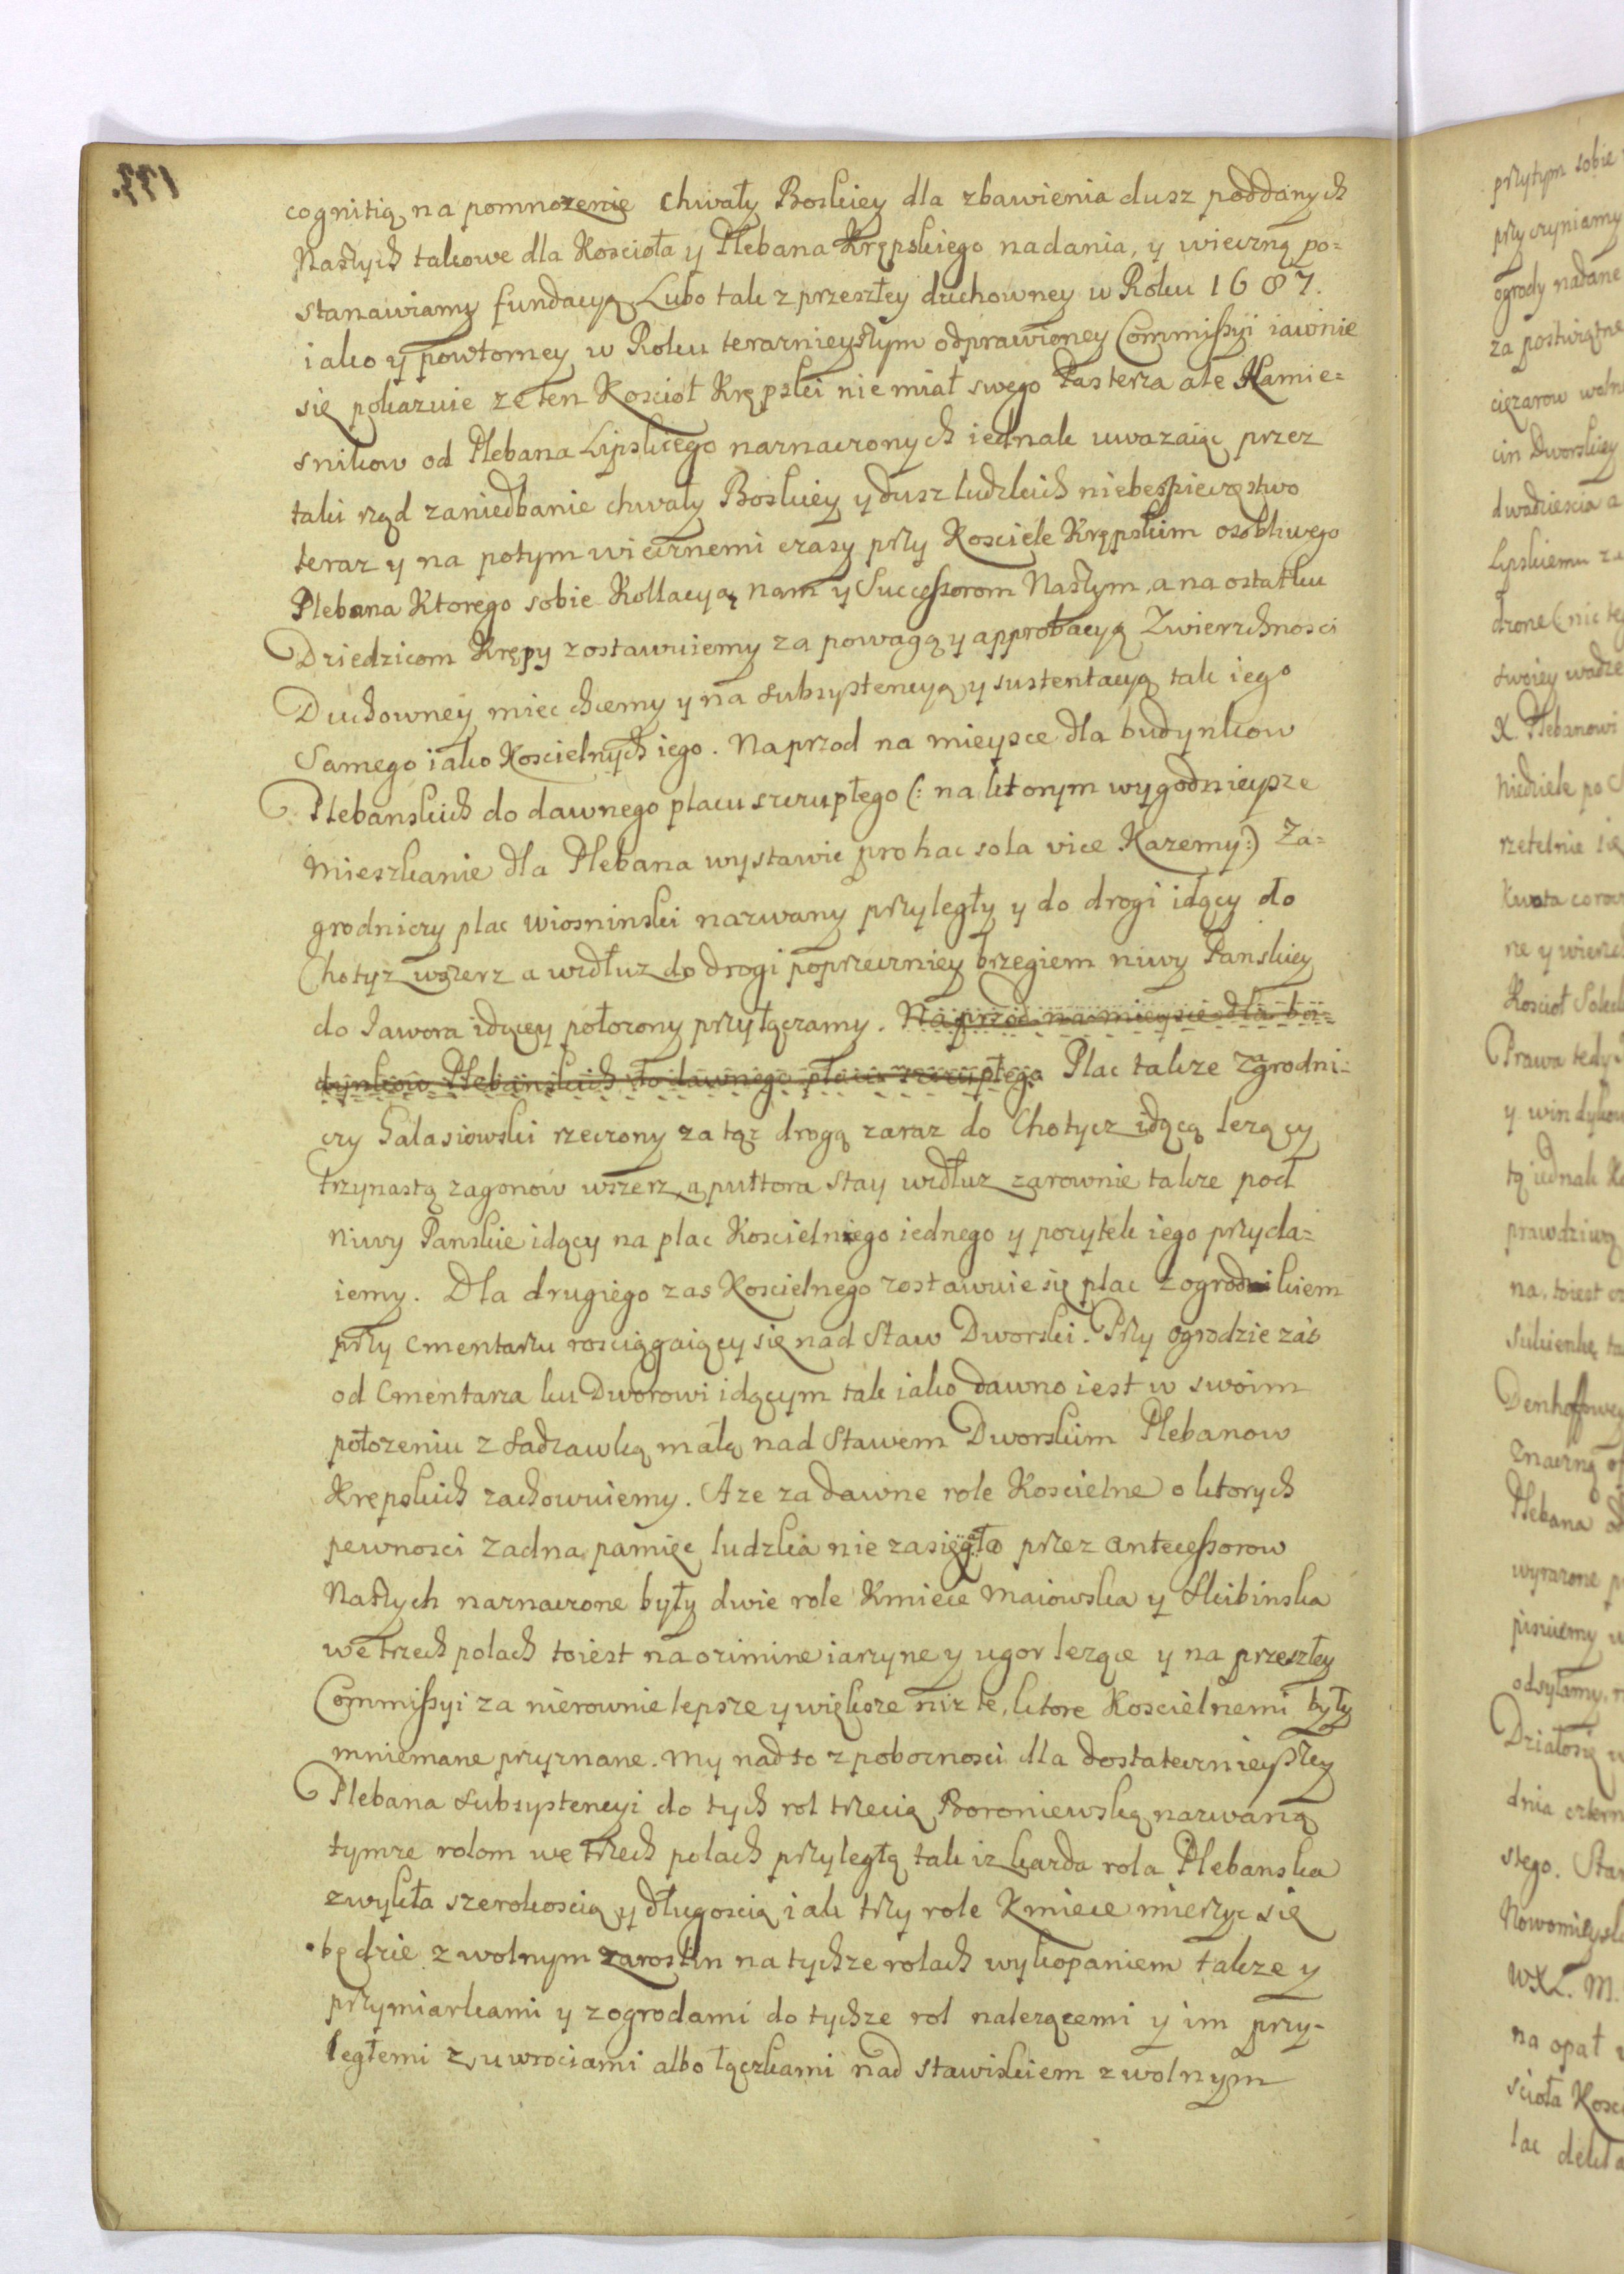 cognitią na pomnozenie chwały Boskiey dla zbawienia dusz poddanych
Naszych takowe dla Koscioła y Plebana Krępskiego nadania, y wieczną po=
stanawiamy fundacyą. Lubo tak z przeszłey duchowney w Roku 1687.
iako y powtorney w Roku teraznieyszym odprawioney Commissyi iawnie
się pokazuie ze ten Kościoł Krępski nie miał swego Pasterza ale Namie=
snikow od Plebana Lipskiego naznaczonych iednak uwazaiąc przez
taki rząd zaniedbanie chwały Boskiey y dusz ludzkich niebespieczęstwo
teraz y na potym wiecznemi czasy przy Kosciele Krępskim osobliwego
Plebana Ktorego sobie Kollacyą nam y Successorom Naszym, a na ostatku
Dziedzicom Krępy zostawuiemy za powagą y approbacyą Zwierzchnosci
Duchowney miec chcemy y na subsystencyą y sustentacyą tak iego
Samego iako Koscielnych iego. Naprzod na mieysce dla budynkow
Plebanskich do dawnego placu szczupłego (: na ktorym wygodnieysze
Mieszkanie dla Plebana wystawic pro hac sola vice Kazemy:) Za=
grodniczy plac Wiosninski nazwany przyległy y do drogi idący do
Chotyz wszerz a wzdłuz do drogi poprzeczniey brzegiem niwy Panskiey
do Jawora idącey połozony przyłączamy. Naprzod na mieysce dla bu=
dynkow Plebanskich do dawnego placu szczupłego Plac takze Zagrodni=
czy Galasiowski rzeczony za tąz drogą zaraz do Chotycz idącą lezący
trzynastą zagonow wszerz, a pułtora stay wzdłuz zarownie takze pod
niwy Panskie idący na plac Koscielnego iednego y pozytek iego przyda=
iemy. Dla drugiego zas Koscielnego zostawuie się plac z ogrodnikiem
przy Cmentarzu rosciągaiący się nad Staw Dworski. Przy ogrodzie zas
od Cmentarza ku Dworowi idącym tak iako dawno iest w swoim
połozeniu z sadzawką małą nad Stawem Dworskim Plebanow
Krepskich zachowuiemy. A ze za dawne role Koscielne o ktorych
pewnosci zadna pamięc ludzka nie zasięgła przez Antecessorow
Naszych naznaczone były dwie role Kmiece Maiowska y Skibinska
we trzech polach toiest na ozimine iarzyne y ugor lezące y na przeszłey
Commissyi za nierownie lepsze y większe niz te, ktore Koscielnemi były
mniemane przyznane. My nadto z poboznosci dla dostatecznieyszey
Plebana subsystencyi do tych rol trzecią Boroniewską nazwaną
tymze rolom we trzech polach przyległą tak iz kazda rola Plebanska
zwykła szerokoscią y długoscią iak trzy role Kmiece mierzyc się
będzie z wolnym zarostin na tychze rolach wykopaniem takze y
przymiarkami y zogrodami do tychze rol nalezącemi y im przy=
ległemi z uwrociami albo łączkami nad stawiskiem z wolnym